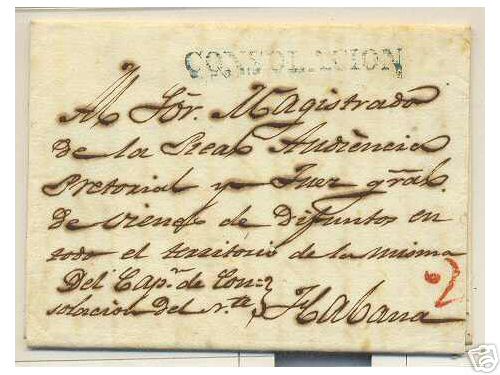 CONSOLACION
Al Sōr. Magistrado
de la Real Audiencia
Pretorial y Juez gral.
de vienes de Difuntos en
todo el territorio de la misma
Del Capn. de Con=
solacion del Nte. Habana
2